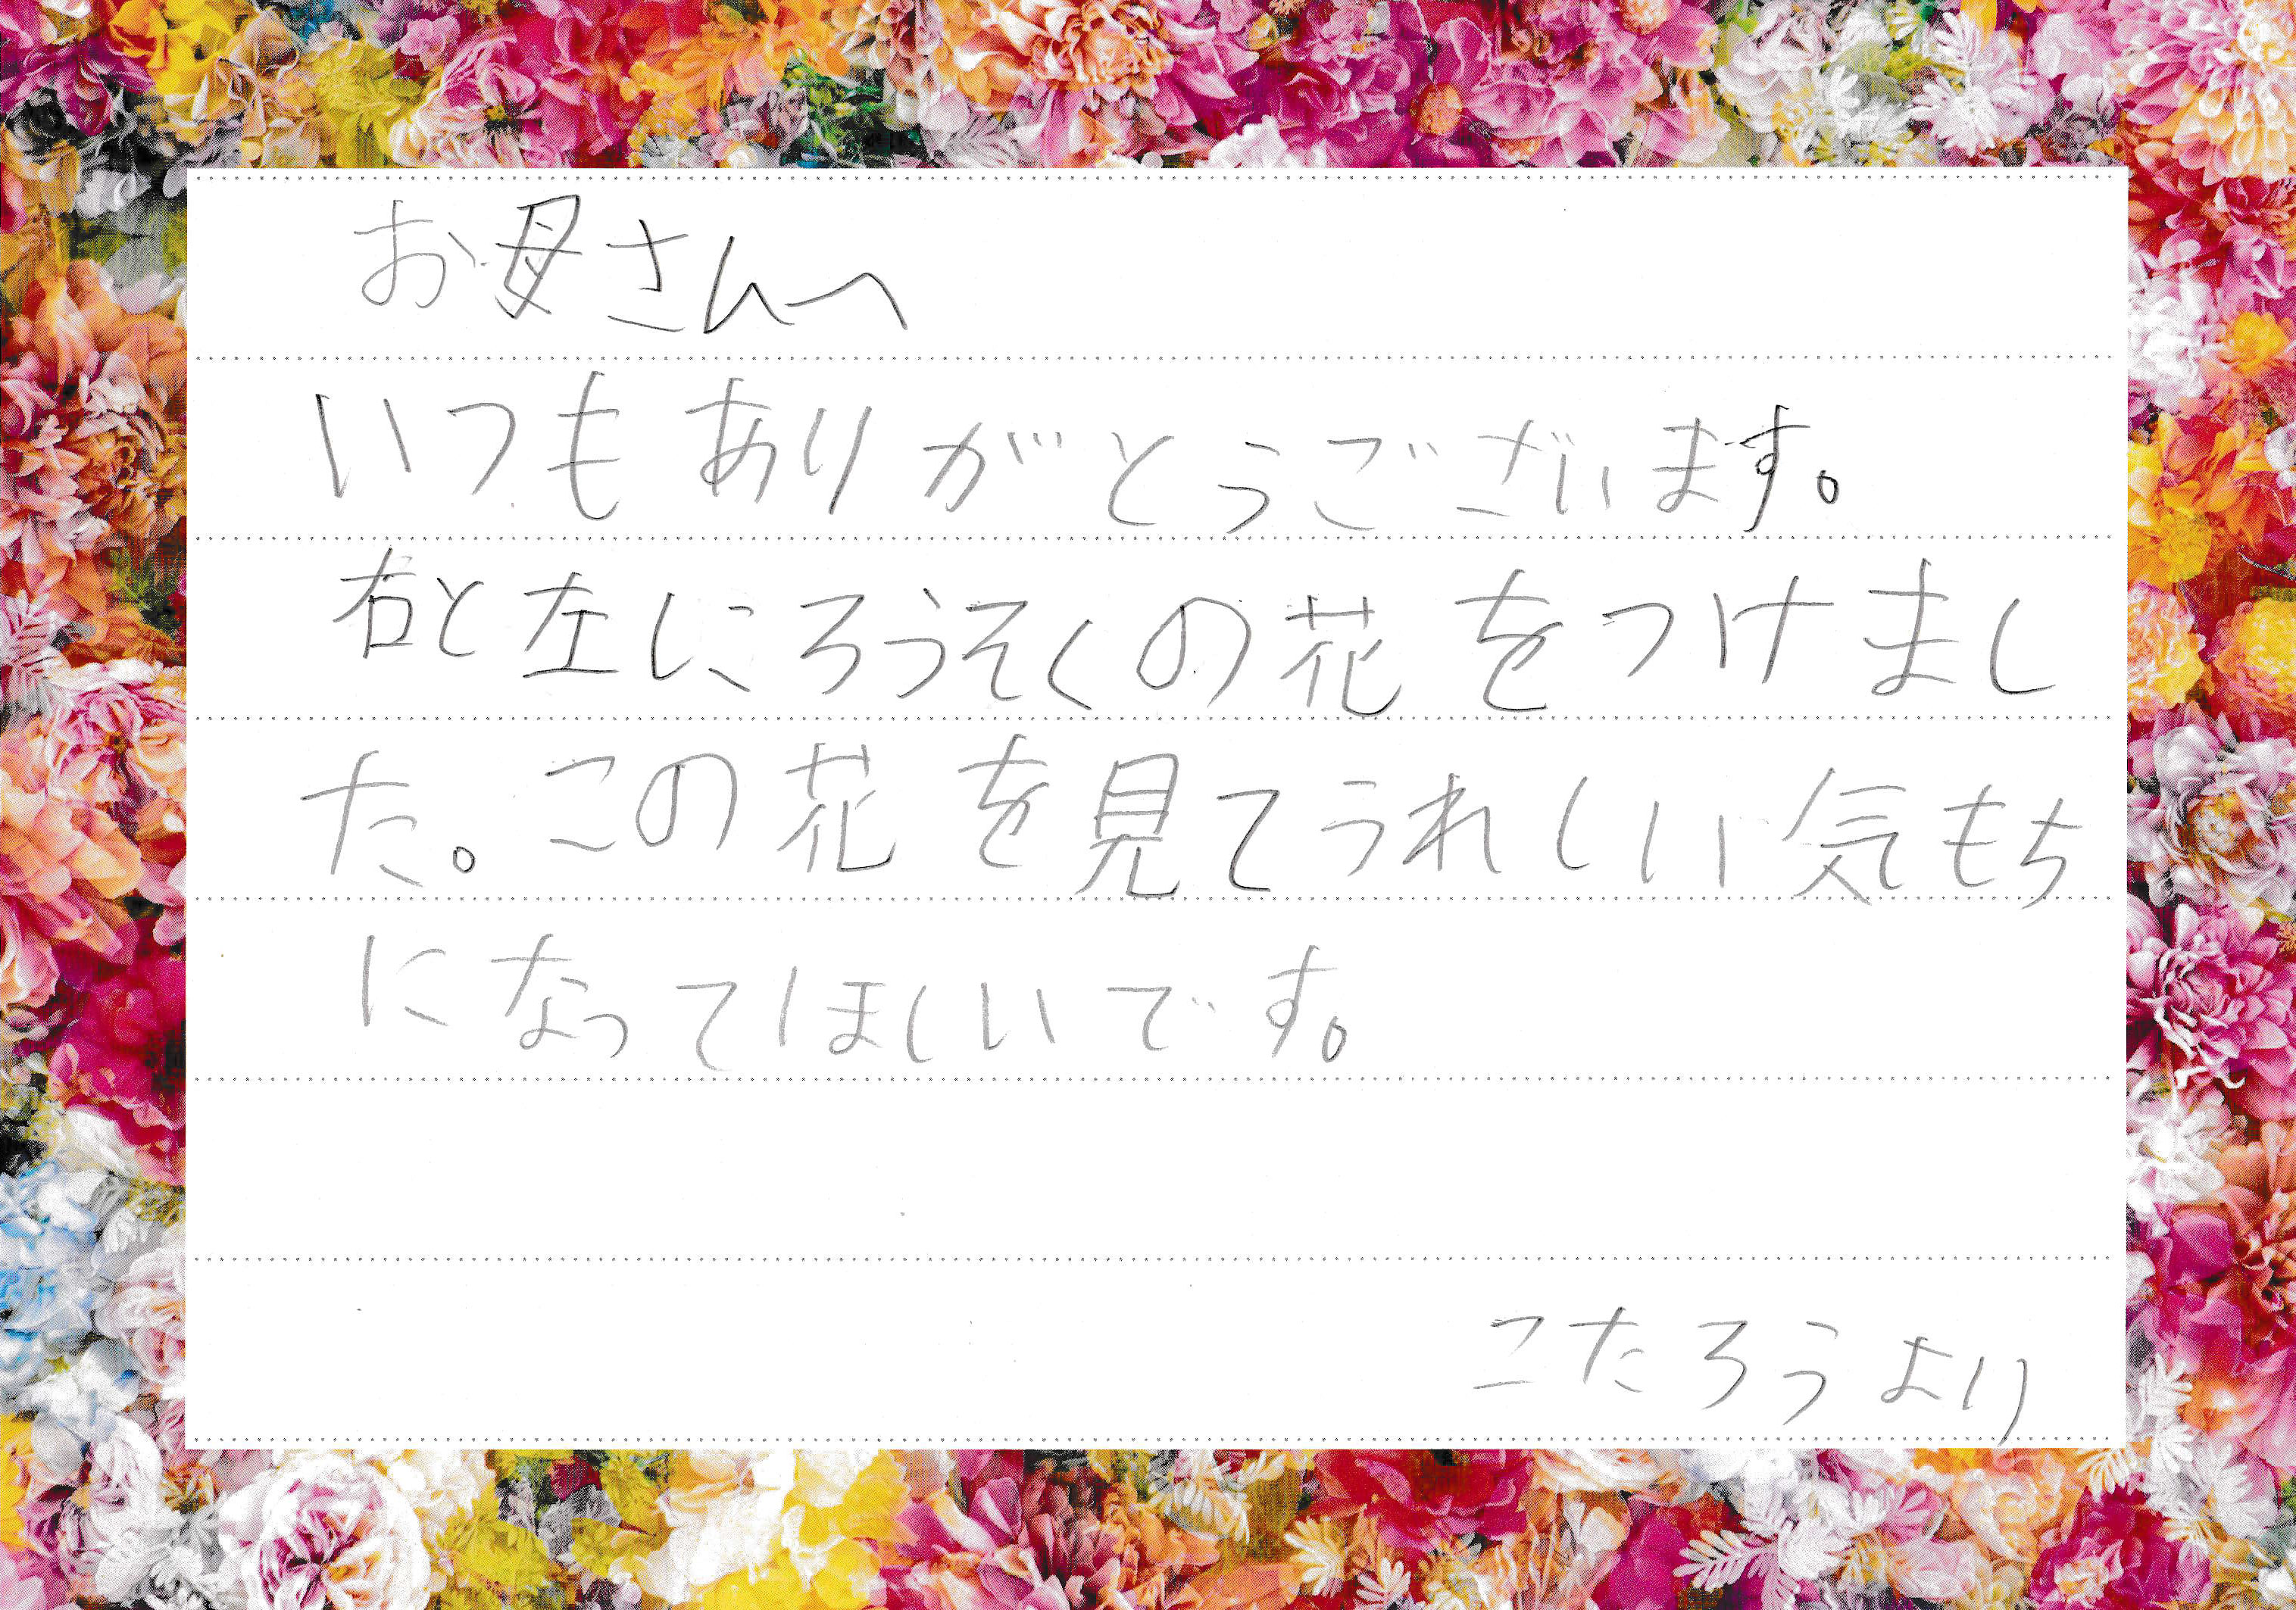 お母さんへ
いつもありがとうございます。
右と左にろうそくの花をつけまし
た。この花を見てうれしい気もち
になってほしいです。
こたろうより